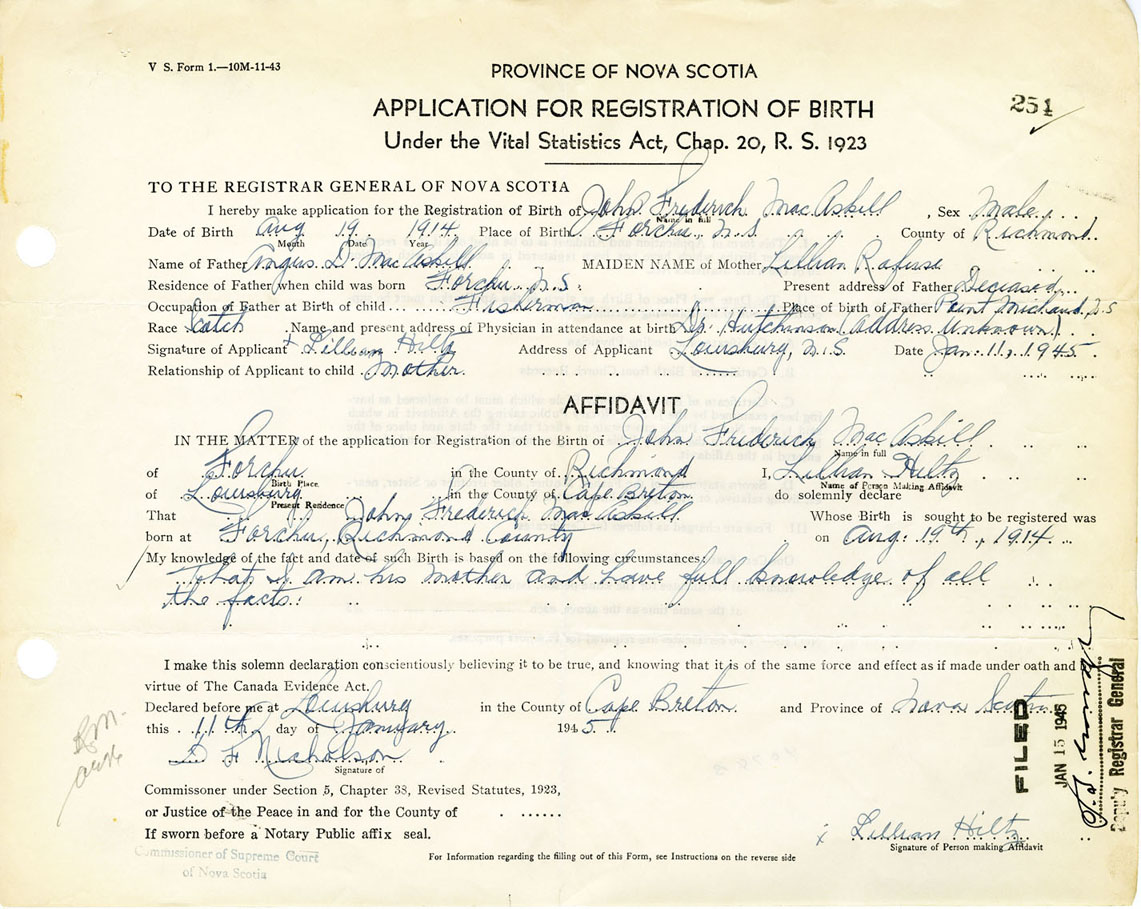 V S. Form 1.—10M-11-43
PROVINCE OF NOVA SCOTIA
APPLICATION FOR REGISTRATION OF BIRTH
251
Under the Vital Statistics Act, Chap. 20, R. S. 1923
TO THE REGISTRAR GENERAL OF NOVA SCOTIA
I hereby make application for the Registration of Birth of John Frederich MacAskill, Sex Male
Name in full
Date of Birth Aug 19 1914 Place of Birth Forchu, N.S County of Richmond
Month Date Year
Name of Father Angus D. MacAskill MAIDEN NAME of Mother Lillian Rafuse
Residence of Father when child was born Forchu N.S Present address of Father Deceased
Occupation of Father at Birth of child Fisherman Place of birth of Father Point Michaud, N.S
Race Scotch Name and present address of Physician in attendance at birth Dr. Hutchinson (address unknown)
Signature of Applicant x Lillian Hiltz Address of Applicant Louisburg, N.S. Date Jan. 11, 1945
Relationship of Applicant to child Mother.
AFFIDAVIT
IN THE MATTER of the application for Registration of the Birth of John Frederich MacAskill
Name in full
of Forchu in the County of Richmond I, Lillian Hiltz
Birth Place. Name of Person Making Affidavit
of Louisburg in the County of Cape Breton do solemnly declare
Present Residence
That John Frederich MacAskill Whose Birth is sought to be registered was
born at Forchu, Richmond County on Aug: 19th, 1914
My knowledge of the fact and date of such Birth is based on the following circumstances:
That I am his mother and have full knowledge of all
the facts.
I make this solemn declaration conscientiously believing it to be true, and knowing that it is of the same force and effect as if made under oath and by
virtue of The Canada Evidence Act.
Declared before me at Louisburg in the County of Cape Breton and Province of Nova Scotia
this 11th day of January 1945
D F Nicholson
Signature of
Commissoner under Section 5, Chapter 38, Revised Statutes, 1923,
or Justice of the Peace in and for the County of
If sworn before a Notary Public affix seal.
Commissioner of Supreme Court
of Nova Scotia
x Lillian Hiltz
Signature of Person making Affidavit
For Information regarding the filling out of this Form, see Instructions on the reverse side
FILED
JAN 15 1945
Deputy Registrar General